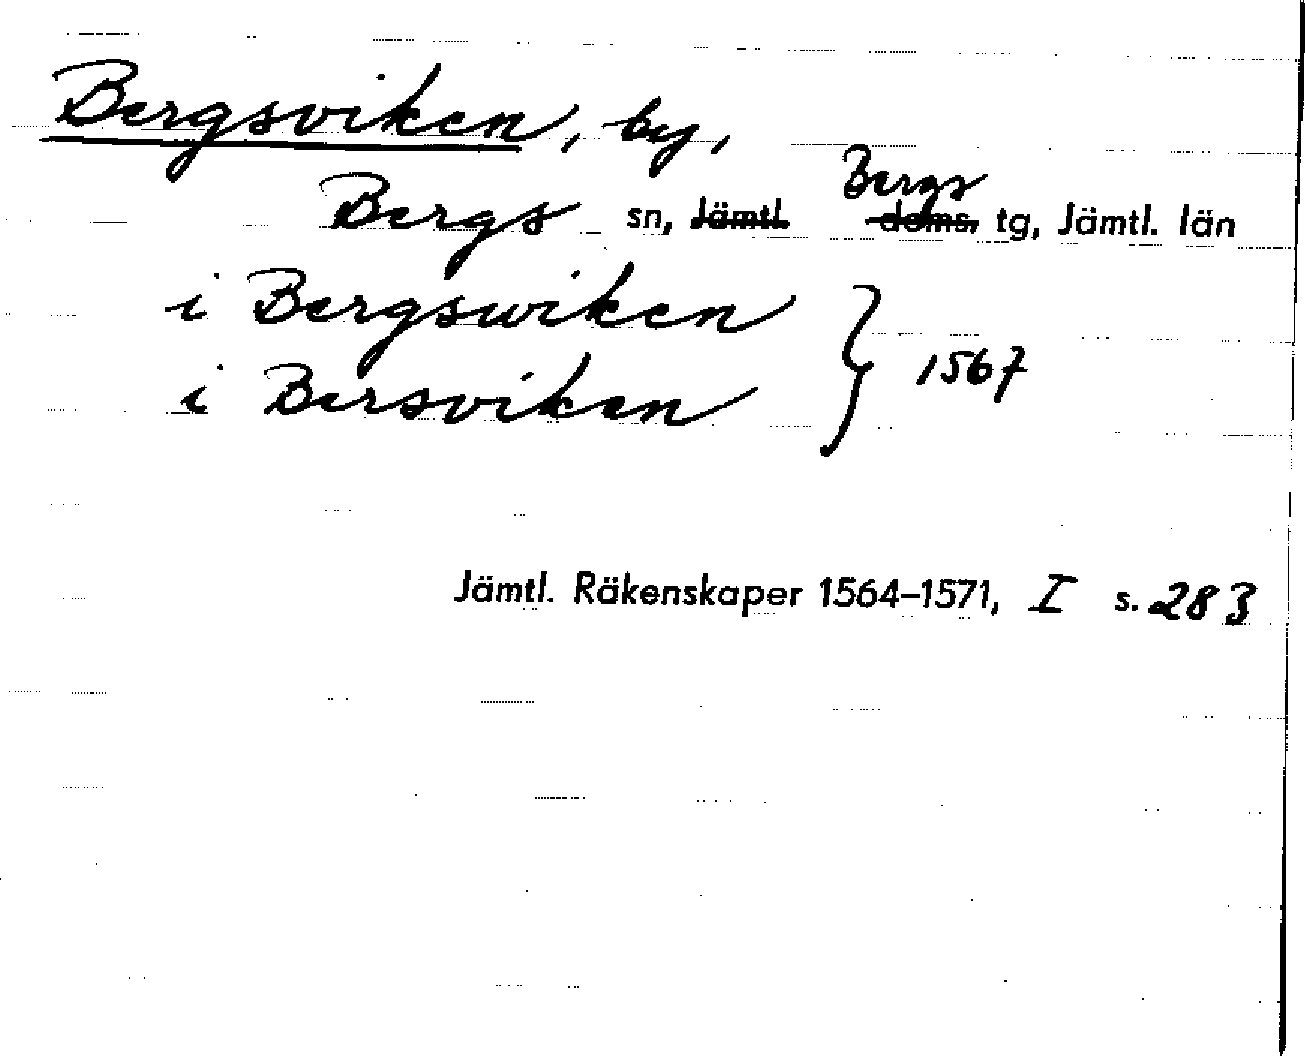 Bergsviken, by,
Bergs sn, Jämtl. Bergs doms. tg, Jämtl. län
i Bergswiken
i Bersviken } 1567
Jämtl. Räkenskaper 1564–1571, I s. 283